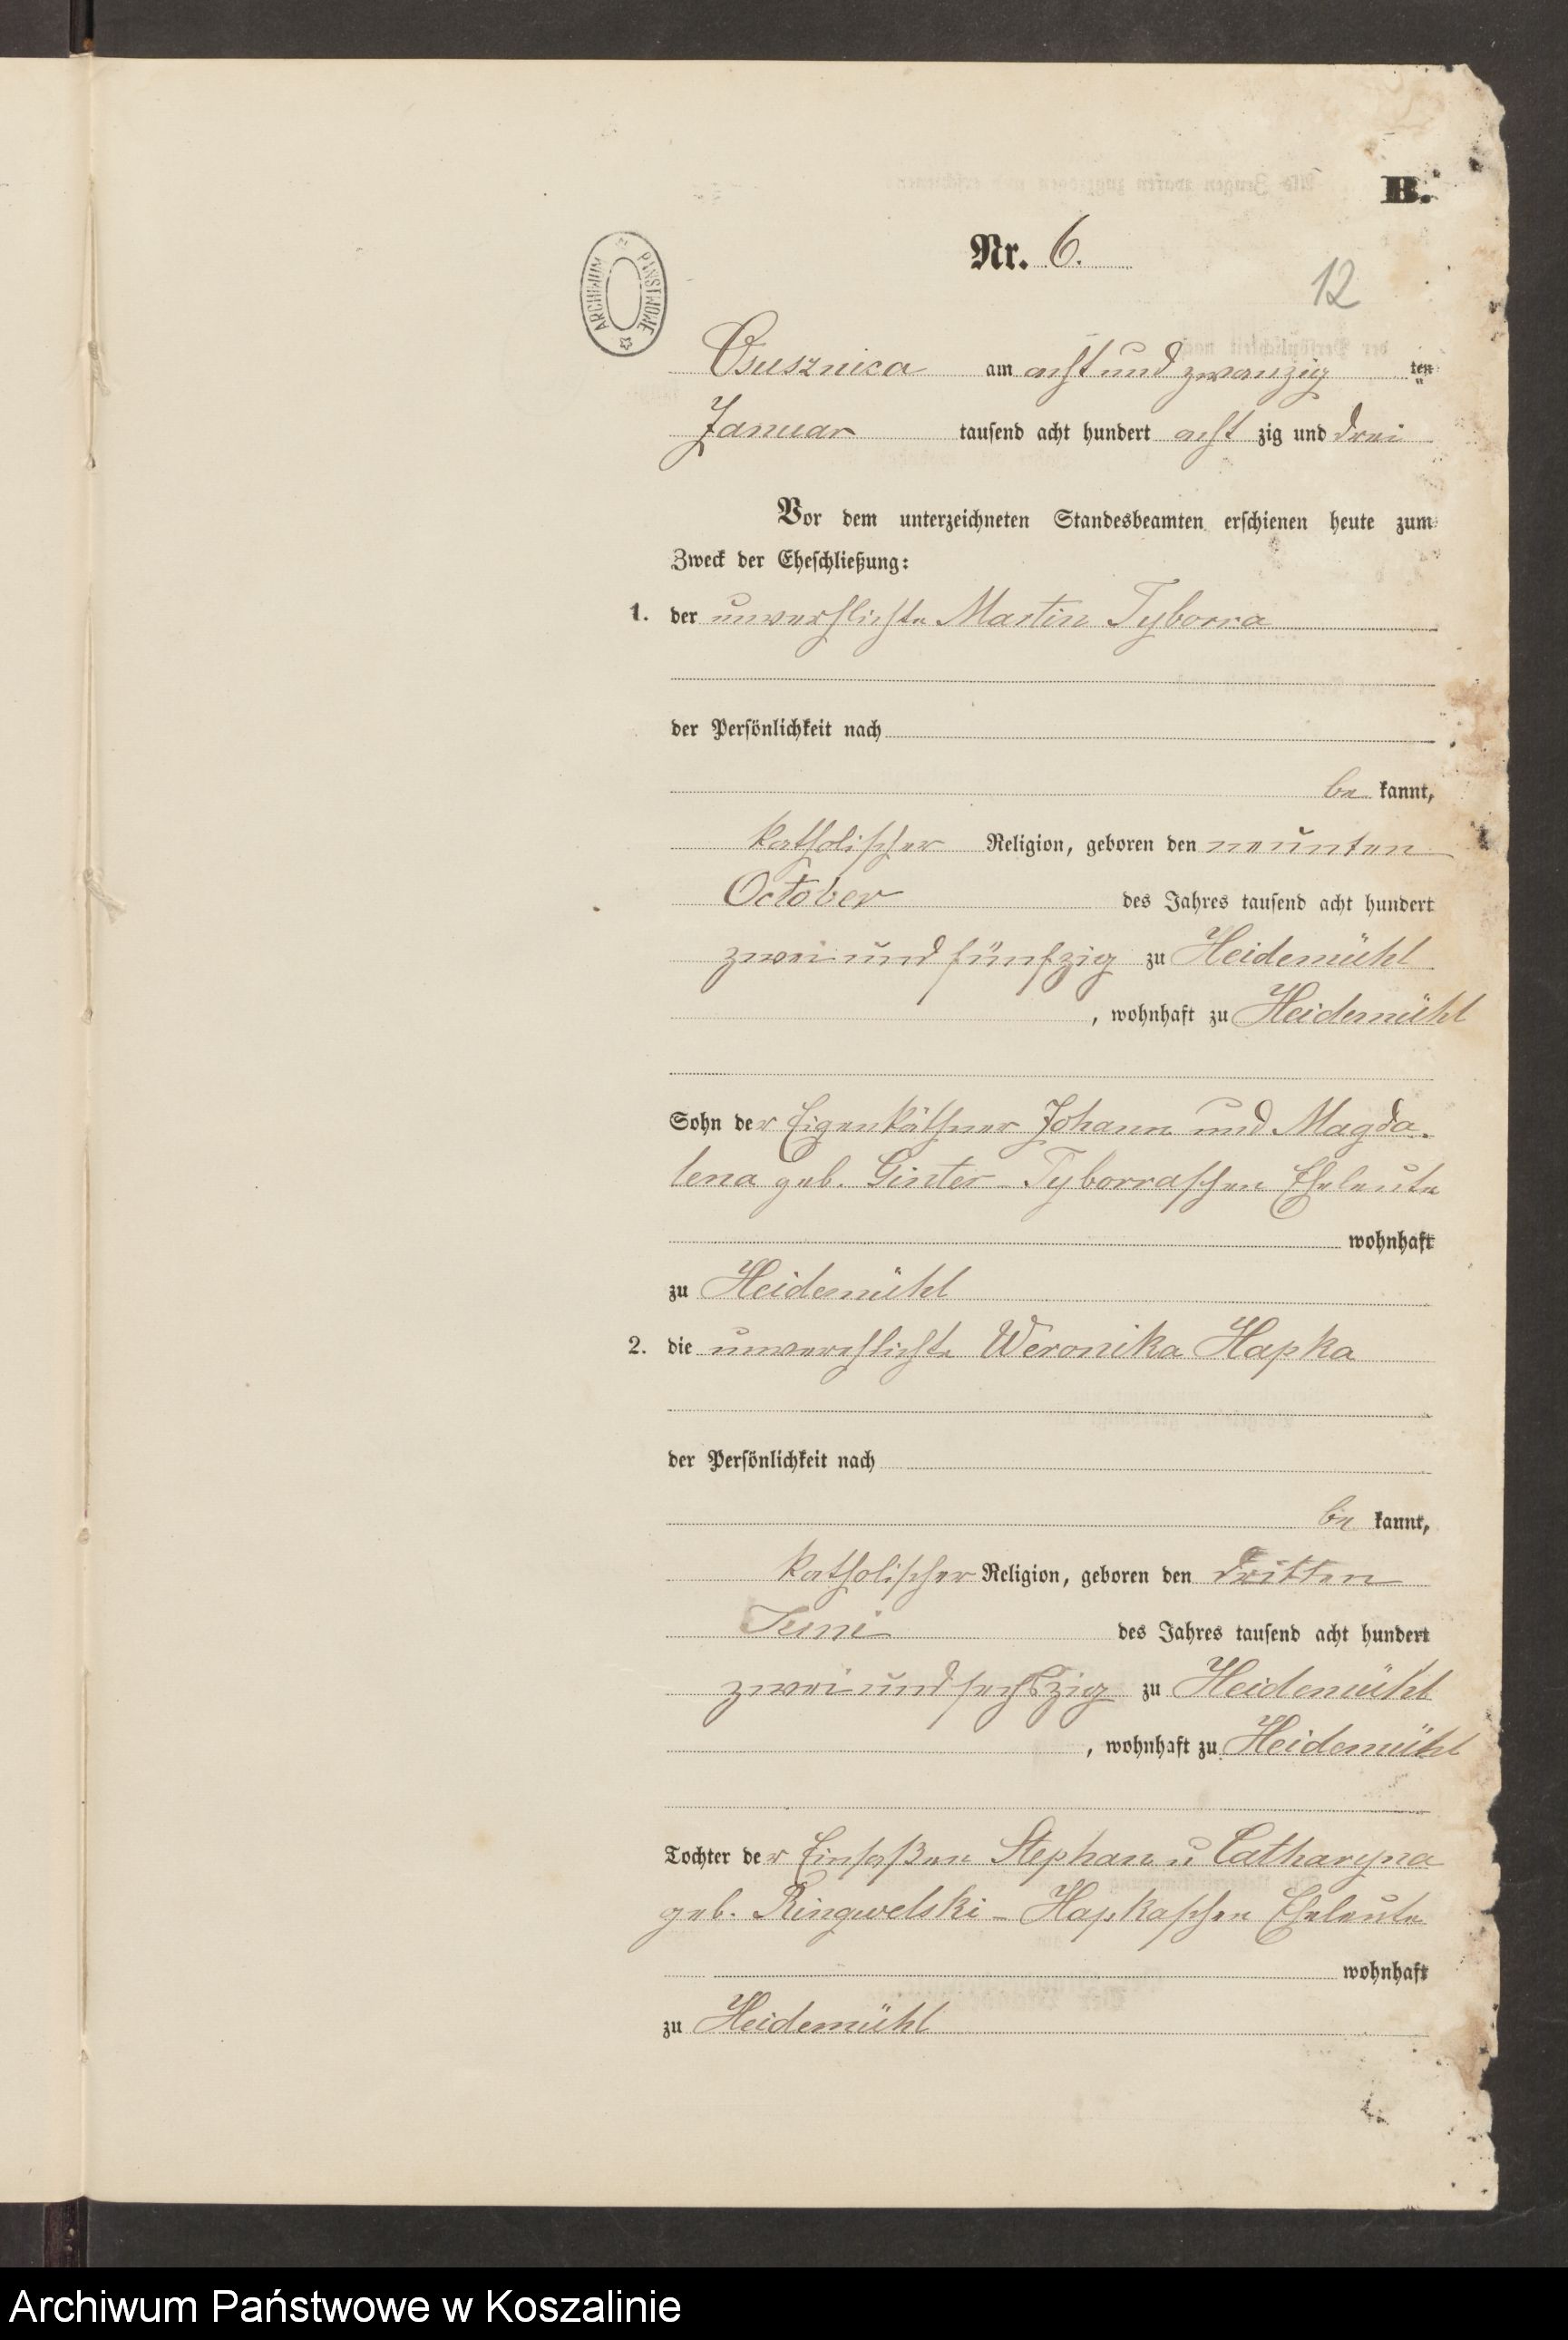 B.
Nr. 6.
12
ARCHIWUM PAŃSTWOWE
Osusznica am acht und zwanzig ten
Januar tausend acht hundert acht zig und drei
Vor dem unterzeichneten Standesbeamten erschienen heute zum
Zweck der Eheschließung:
1. der unverehlichte Martin Tyborra
der Persönlichkeit nach
be kannt,
katholischer Religion, geboren den neunten
October des Jahres tausend acht hundert
zwei und fünfzig zu Heidemühl
, wohnhaft zu Heidemühl
Sohn der Eigenkäthner Johann und Magda-
lena geb. Ginter-Tyborraschen Eheleute
wohnhaft
zu Heidemühl
2. die unverehlichte Weronika Hapka
der Persönlichkeit nach
be kannt,
katholischer Religion, geboren den dritten
Juni des Jahres tausend acht hundert
zwei und sechszig zu Heidemühl
, wohnhaft zu Heidemühl
Tochter der Einsaßen Stephan u Catharyna
geb. Ringwelski-Hapkaschen Eheleute
wohnhaft
zu Heidemühl
Archiwum Państwowe w Koszalinie